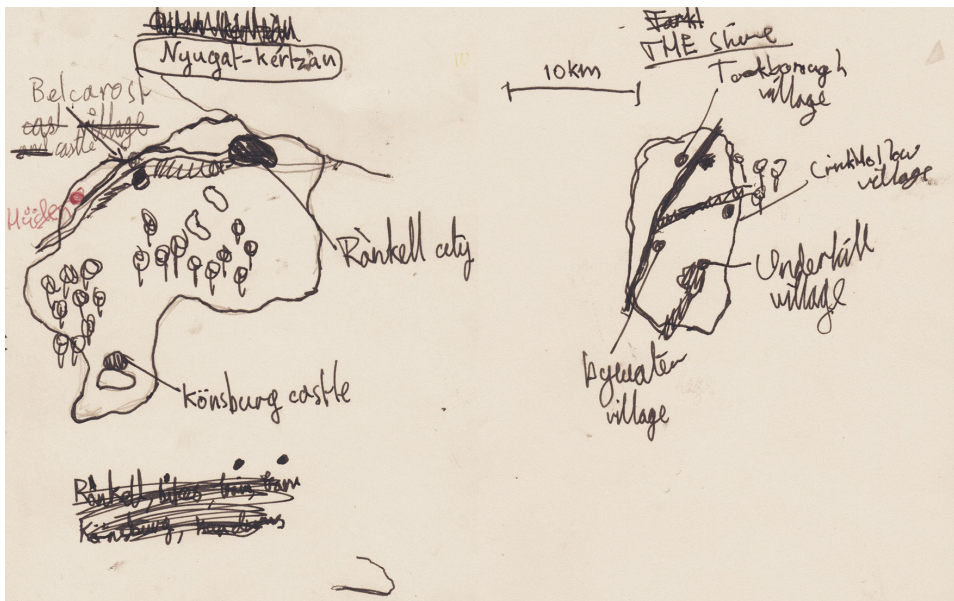 Nyugat-kertzån
Belcarost
east village
and castle
Rånkell city
Könsburg castle
Rånkell, bikes, train, tram
Könsburg,
THE Shire
10km
Tookborough
village
Crinkhollow
village
Underhill
village
Bywater
village